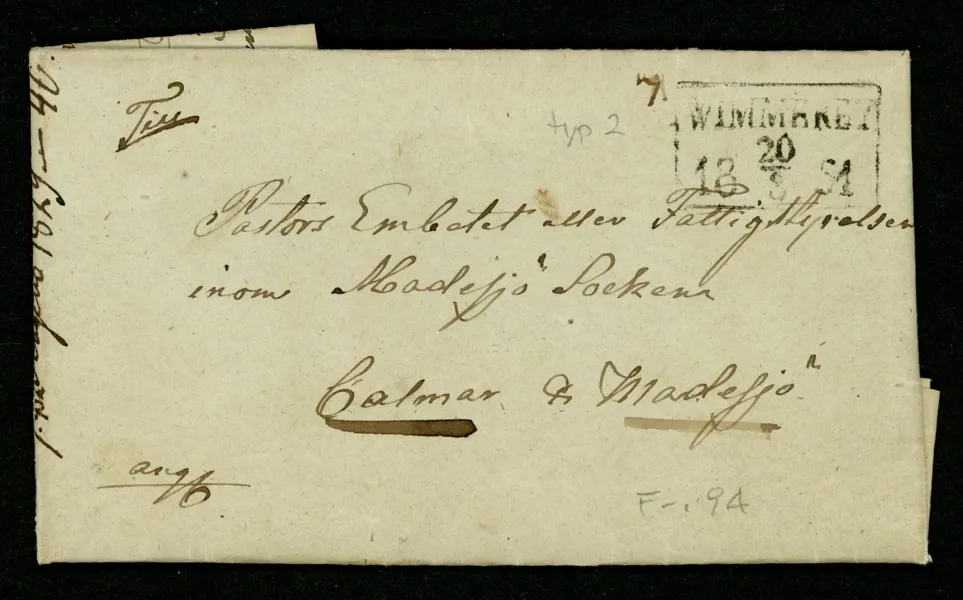 Till
typ 2
7
WIMMERBY
20
18 8 51
Pastors Embetet eller Fattigstyrelsen
inom Madesjö Socken
Calmar & Madesjö
angt
F - : 94